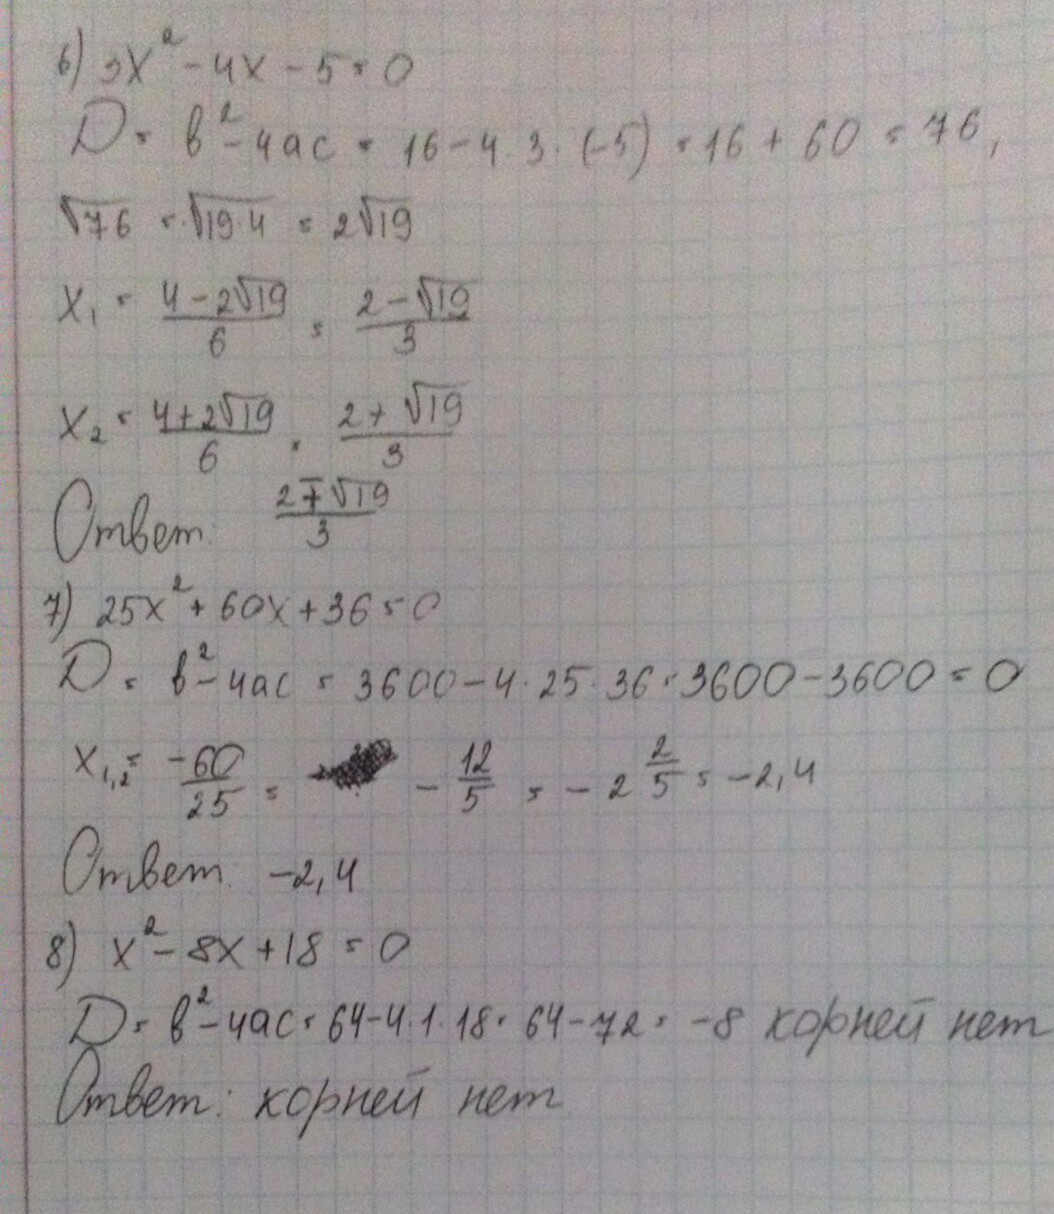 6) 3x² - 4x - 5 = 0
D = b² - 4ac = 16 - 4 · 3 · (-5) = 16 + 60 = 76,
√76 = √19·4 = 2√19
x₁ = (4 - 2√19)/6 = (2 - √19)/3
x₂ = (4 + 2√19)/6 = (2 + √19)/3
Ответ: (2 ∓ √19)/3
7) 25x² + 60x + 36 = 0
D = b² - 4ac = 3600 - 4 · 25 · 36 = 3600 - 3600 = 0
x₁,₂ = -60/25 = - 12/5 = - 2 2/5 = -2,4
Ответ: -2,4
8) x² - 8x + 18 = 0
D = b² - 4ac = 64 - 4 · 1 · 18 = 64 - 72 = -8 корней нет
Ответ: корней нет